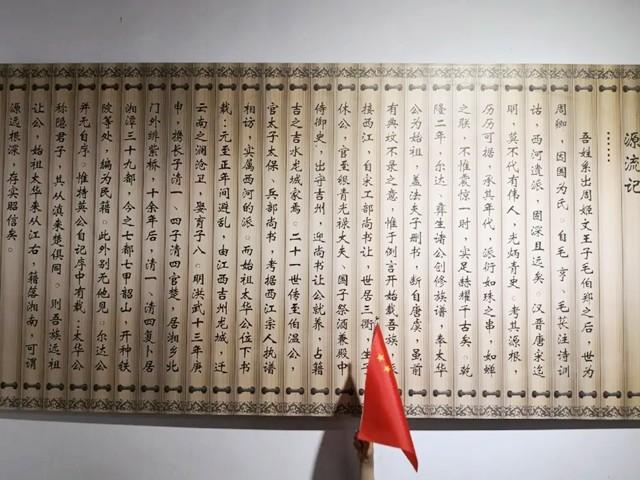 源流记
……
吾姓系出周姬文王子毛伯郑之后，世为
周卿，因国为氏。自毛亨、毛长注诗训
诂，西河遗派，固深且远矣。汉晋唐宋迄
明，莫不代有伟人，光炳青史。考其源根，
历历可据。承其年代，派衍如珠之串，如蝉
之联，不惟震惊一时，实足赫耀千古矣。乾
隆二年，尔达、彝生诸公创修族谱，奉太华
公为始祖，盖法夫子删书，断自唐虞，虽前
有典坟不录之意。惟于例言开始载吾族，派
接西江，自宋工部尚书让，世居三衢，生
休公，官至银青光禄大夫、国子祭酒兼殿中
侍御史，出守吉州，迎尚书让公就养，占籍
吉之吉水龙城家焉。二十一世传至伯温公，
官太子太保、兵部尚书，考据西江宗人执谱
相访，实属西河的派。而始祖太华公位下书
载：元至正年间避乱，由江西吉州龙城，迁
云南之澜沧卫，娶育子八。明洪武十三年庚
申，携长子清一、四子清四官楚，居湘乡北
门外绯紫桥，十余年后，清一、清四复卜居
湘潭三十九都，今之七都七甲韶山，开种铁
陂等处，编为民籍。此外别无他见。尔达公
并无自序，惟特英公自记序中有载：太华公
称隐君子，其从滇来楚俱同。则吾族远祖
让公，始祖太华来从江右，籍落湘南，可谓
源远根深，存实昭信矣。